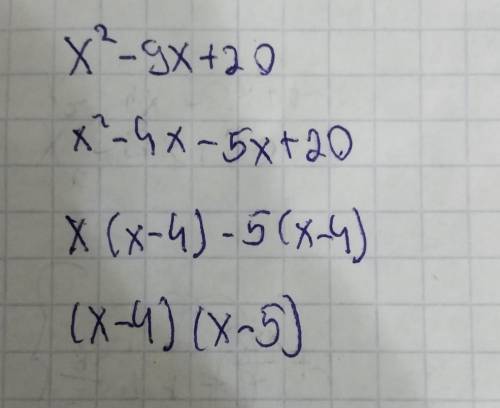 x² - 9x + 20
x² - 4x - 5x + 20
x (x - 4) - 5 (x - 4)
(x - 4) (x - 5)